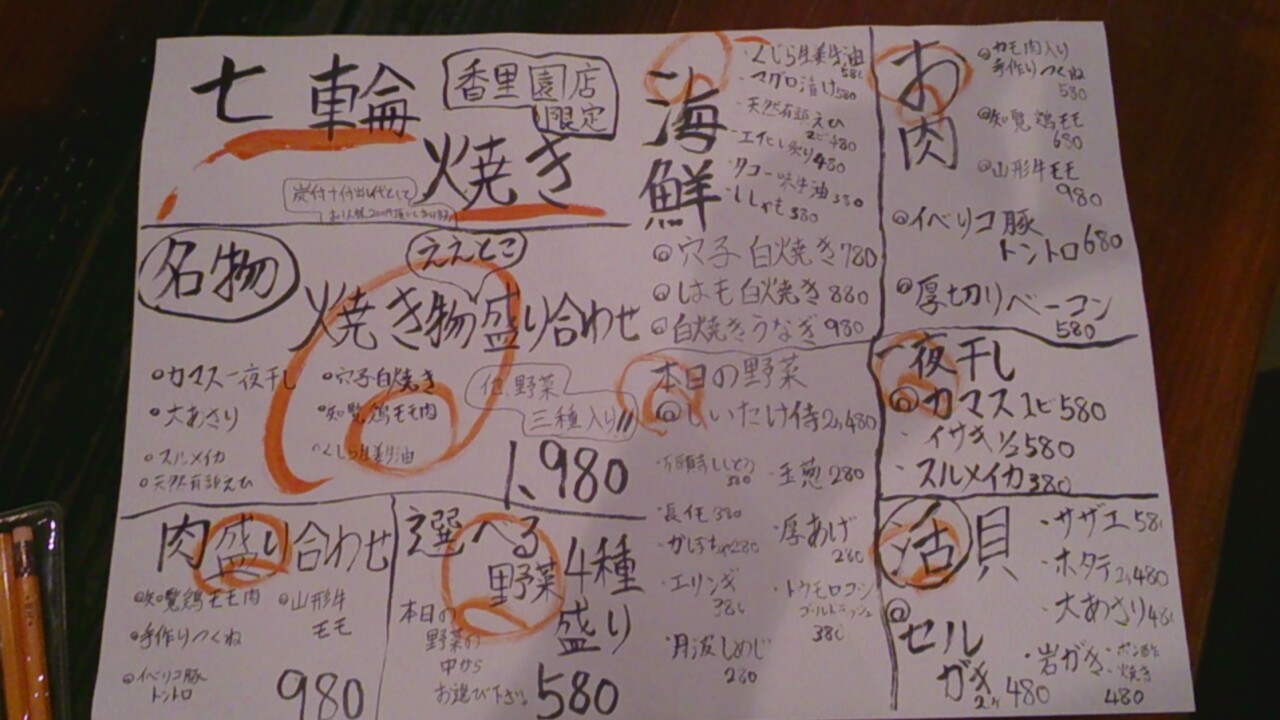 七輪
焼き
香里園店
限定
名物
ええとこ
焼き物盛り合わせ
カマス一夜干し
大あさり
スルメイカ
天然有頭えび
穴子白焼き
知覧鶏モモ肉
くじら生姜牛油
他、野菜
三種入り!!
1,980
肉盛り合わせ
知覧鶏モモ肉
手作りつくね
イベリコ豚
トントロ
山形牛
モモ
980
選べる
野菜4種
盛り
本日の
野菜の
中から
お選び下さい
580
海鮮
・くじら生姜牛油
580
・マグロ漬け580
・天然有頭えび
2ヒ480
・エイヒレ炙り480
・タコ一味牛油380
・ししゃも380
◎穴子白焼き780
◎はも白焼き880
◎白焼きうなぎ980
本日の野菜
◎しいたけ侍2ヶ480
・万願寺ししとう
380
・長芋380
・かぼちゃ280
・エリンギ
380
・丹波しめじ
280
・玉葱280
・厚あげ
280
・トウモロコシ
ゴールドラッシュ
380
お肉
◎カモ肉入り
手作りつくね
580
◎知覧鶏モモ
680
◎山形牛モモ
980
◎イベリコ豚
トントロ680
◎厚切りベーコン
580
一夜干し
◎カマス1ピ580
・イサキ1/2580
・スルメイカ380
活貝
・サザエ580
・ホタテ2ヶ480
・大あさり480
◎セル
ガキ
2ヶ480
・岩がき・ポン酢
・焼き
480